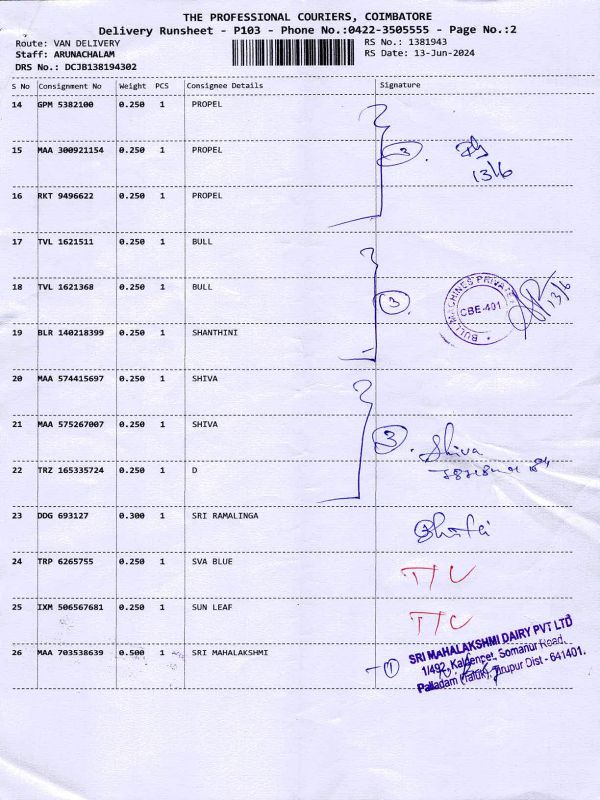 THE PROFESSIONAL COURIERS, COIMBATORE
Delivery Runsheet - P103 - Phone No.:0422-3505555 - Page No.:2
Route: VAN DELIVERY RS No.: 1381943
Staff: ARUNACHALAM RS Date: 13-Jun-2024
DRS No.: DCJB138194302
S No Consignment No Weight PCS Consignee Details Signature
14 GPM 5382100 0.250 1 PROPEL
15 MAA 300921154 0.250 1 PROPEL
3
13/6
16 RKT 9496622 0.250 1 PROPEL
17 TVL 1621511 0.250 1 BULL
18 TVL 1621368 0.250 1 BULL
3
BULL MACHINES PRIVATE
CBE-401
13/6
19 BLR 140218399 0.250 1 SHANTHINI
20 MAA 574415697 0.250 1 SHIVA
21 MAA 575267007 0.250 1 SHIVA
3
Shiva
22 TRZ 165335724 0.250 1 D
23 DDG 693127 0.300 1 SRI RAMALINGA
24 TRP 6265755 0.250 1 SVA BLUE
25 IXM 506567681 0.250 1 SUN LEAF
26 MAA 703538639 0.500 1 SRI MAHALAKSHMI
1
SRI MAHALAKSHMI DAIRY PVT LTD
1/492, Somanur Road,
Palladam (Taluk), Tirupur Dist - 641401.